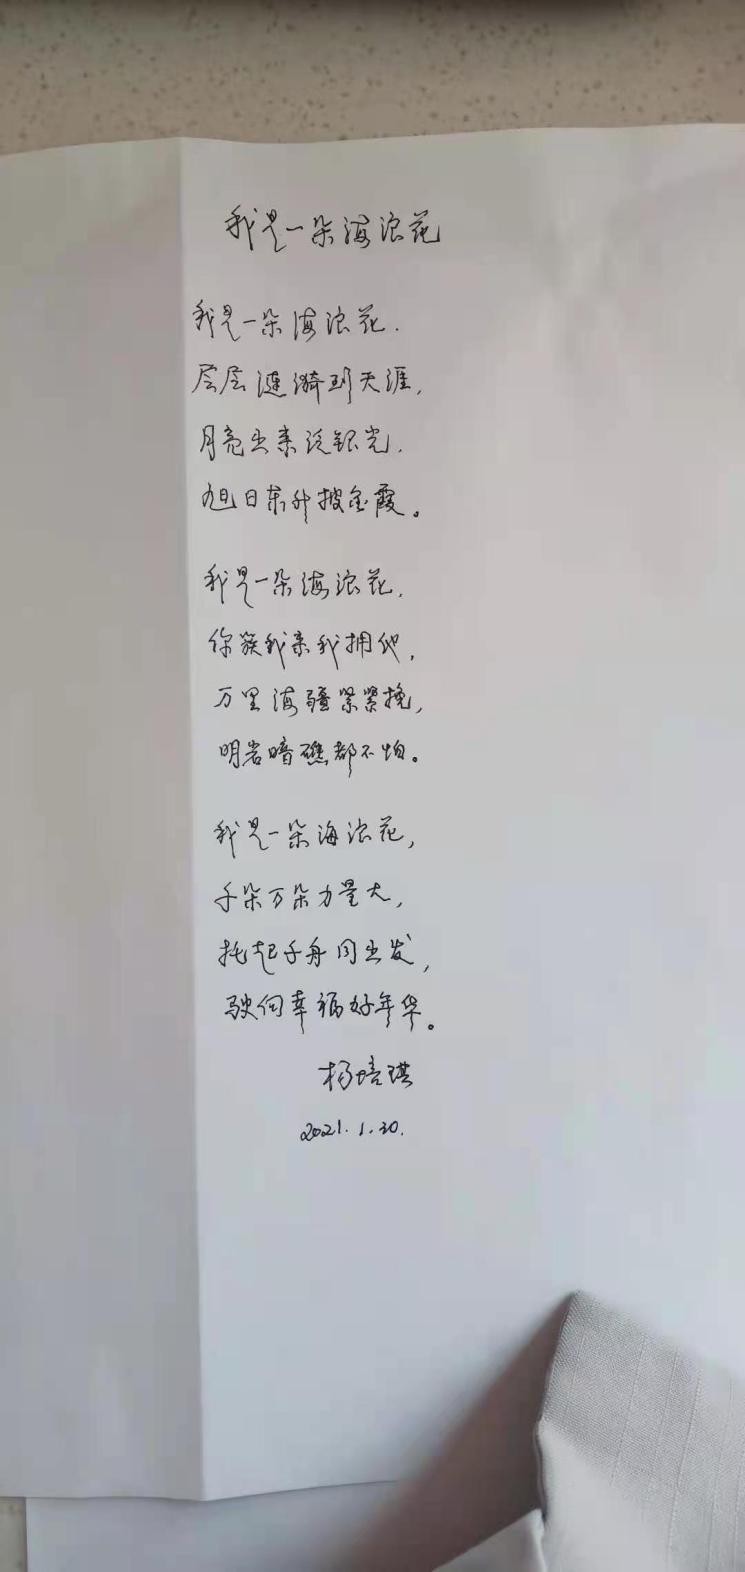 我是一朵海浪花
我是一朵海浪花.
层层涟漪到天涯,
月亮出来泛银光.
旭日东升披金霞。
我是一朵海浪花.
你簇我来我拥他,
万里海疆紧紧挽,
明岩暗礁都不怕。
我是一朵海浪花,
千朵万朵力量大,
托起千舟同出发,
驶向幸福好年华。
杨培琪
2021.1.30.